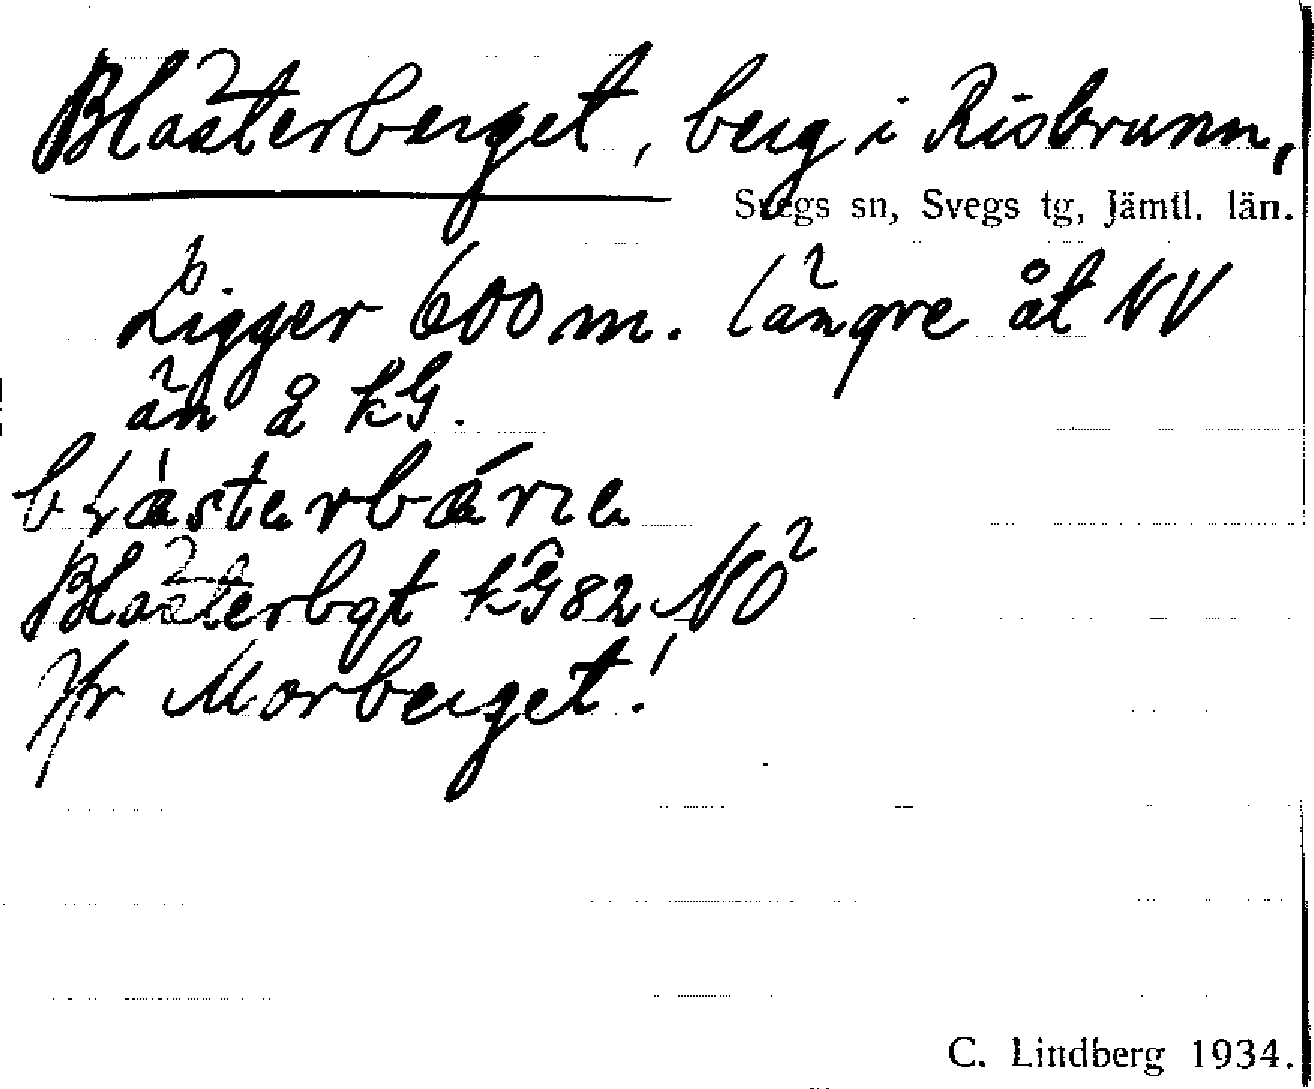 Blästerberget, berg i Risbrunn,
Svegs sn, Svegs tg, Jämtl. län.
Ligger 600 m. längre åt NV
än å kG.
Blästerbgt kG 82 NO²
Jfr Morberget!
C. Lindberg 1934.